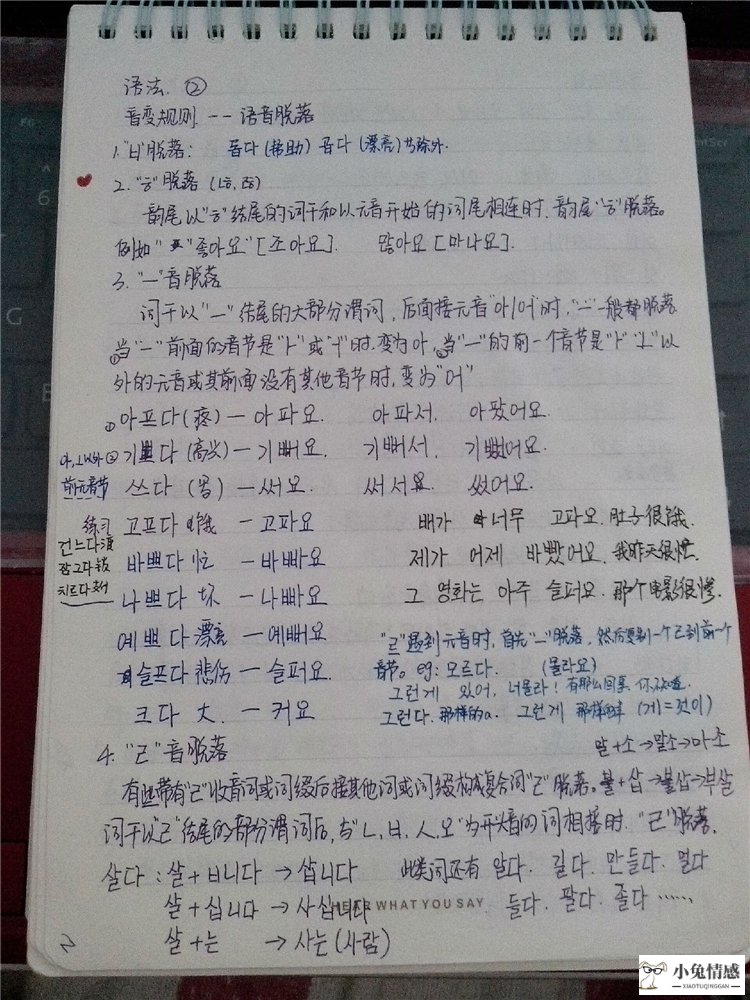 语法 ②
音变规则 -- 语音脱落
1."ㅂ"脱落: 돕다(帮助) 곱다(漂亮)书除外
2."ㅎ"脱落 (ㄶ, ㅀ)
韵尾以"ㅎ"结尾的词干和以元音开始的词尾相连时,韵尾"ㅎ"脱落。
例如" "좋아요"[조아요]. 많아요[마나요].
3. "ㅡ"音脱落
词干以"ㅡ"结尾的大部分谓词,后面接元音"아/어"时,"ㅡ"一般都脱落
①当"ㅡ"前面的音节是"ㅏ"或"ㅗ"时.变为아,②当"ㅡ"的前一个音节是"ㅏ""ㅗ"以
外的元音或其前面没有其他音节时,变为"어"
①아프다(疼) — 아파요. 아파서. 아팠어요.
아,ㅗ以外 ② 기쁘다(高兴) — 기뻐요. 기뻐서. 기뻤어요.
前无音节 쓰다 (写) — 써요. 써서요. 썼어요.
练习 고프다 饿 — 고파요 배가 너무 고파요.肚子很饿.
건느다渡
잠그다锁
치르다
바쁘다 忙 — 바빠요 제가 어제 바빴어요.我昨天很忙.
나쁘다 坏 — 나빠요 그 영화는 아주 슬퍼요.那个电影很惨.
예쁘다 漂亮 — 예뻐요
"ㄹ"遇到元音时,首先"ㅡ"脱落,然后要别一个ㄹ到前一个
슬프다 悲伤 — 슬퍼요.
音节。eg: 모르다. (몰라요)
그런게 있어, 너몰라! 有那么回事,你不知道.
크다 大. — 커요
그런다.那样的a. 그런게 那样的事 (게=것이)
4. "ㄹ"音脱落
말+소→말소→마소
有些带有"ㄹ"收音词或词缀后接其他词或词缀构成复合词"ㄹ"脱落。불+삽→불삽→부삽
词干以"ㄹ"结尾的部分谓词后,与"ㄴ,ㅂ,ㅅ,오"为开头音的词相接时."ㄹ"脱落.
살다: 살+ㅂ니다 → 삽니다 此类词还有 알다. 길다. 만들다. 멀다
살+십니다 → 사십니다 들다. 팔다. 졸다 ……
HEAR WHAT YOU SAY
살+는 → 사는(사람)
2
小兔情感
XIAOTUQINGGAN